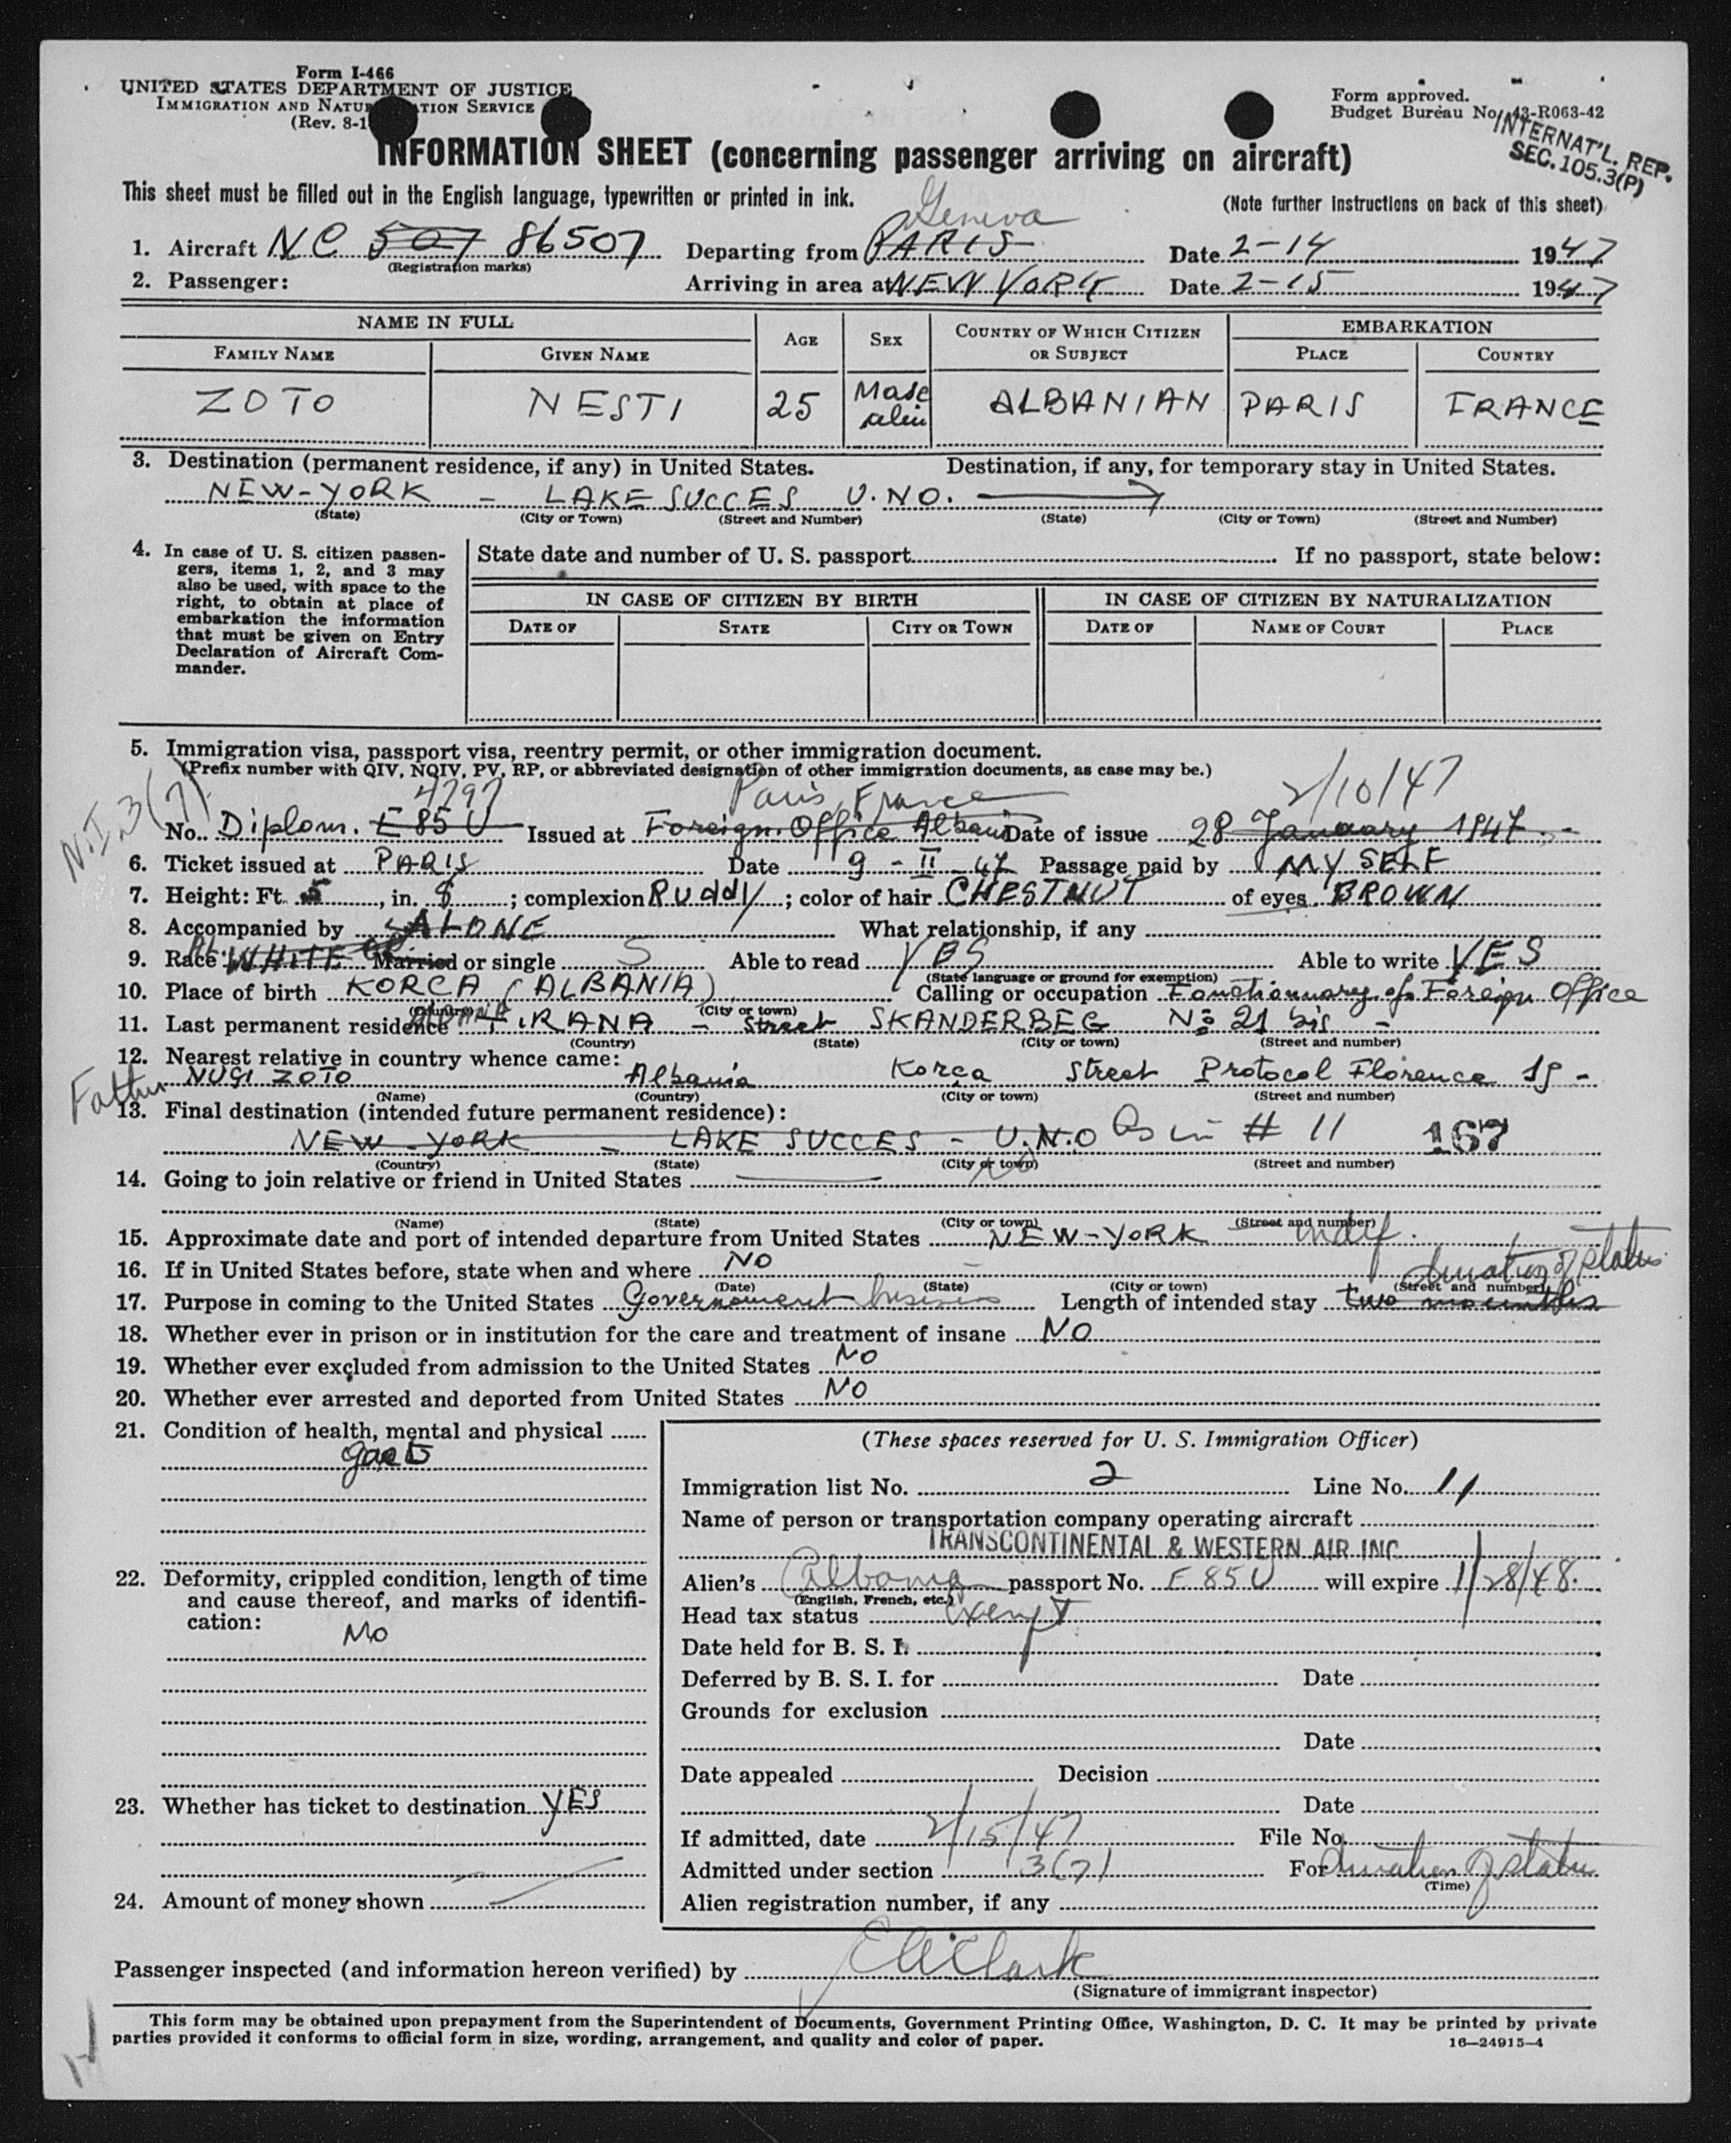 Form I-466
UNITED STATES DEPARTMENT OF JUSTICE
IMMIGRATION AND NATURALIZATION SERVICE
(Rev. 8-1
Form approved.
Budget Bureau No. 43-R063-42
INTERNAT'L. REP.
SEC. 105.3(P)
INFORMATION SHEET (concerning passenger arriving on aircraft)
This sheet must be filled out in the English language, typewritten or printed in ink.
(Note further instructions on back of this sheet)
Geneva
1. Aircraft NC 507 86507 Departing from PARIS Date 2-14 1947
(Registration marks)
2. Passenger: Arriving in area at NEW YORK Date 2-15 1947
NAME IN FULL AGE SEX COUNTRY OF WHICH CITIZEN OR SUBJECT EMBARKATION
FAMILY NAME GIVEN NAME PLACE COUNTRY
ZOTO NESTI 25 Masc ALBANIAN PARIS FRANCE
3. Destination (permanent residence, if any) in United States. Destination, if any, for temporary stay in United States.
NEW-YORK - LAKE SUCCES U.NO.
(State) (City or Town) (Street and Number) (State) (City or Town) (Street and Number)
4. In case of U. S. citizen passen-
gers, items 1, 2, and 3 may
also be used, with space to the
right, to obtain at place of
embarkation the information
that must be given on Entry
Declaration of Aircraft Com-
mander.
State date and number of U. S. passport If no passport, state below:
IN CASE OF CITIZEN BY BIRTH IN CASE OF CITIZEN BY NATURALIZATION
DATE OF STATE CITY OR TOWN DATE OF NAME OF COURT PLACE
5. Immigration visa, passport visa, reentry permit, or other immigration document.
(Prefix number with QIV, NQIV, PV, RP, or abbreviated designation of other immigration documents, as case may be.)
N.I. 3(7) 4797 Paris, France 2/10/47
No. Diplom. E 85 U Issued at Foreign Office Albani Date of issue 28 January 1947
6. Ticket issued at PARIS Date 9-II-47 Passage paid by MY SELF
7. Height: Ft. 5, in. 8; complexion Ruddy; color of hair CHESTNUT of eyes BROWN
8. Accompanied by ALONE What relationship, if any
9. Race WHITE Married or single S Able to read YES Able to write YES
(State language or ground for exemption)
10. Place of birth KORCA (ALBANIA) Calling or occupation Fonctionnary of Foreign Office
(Country) (City or town)
11. Last permanent residence ALBANIA TIRANA - Street SKANDERBEG No 21 bis -
(Country) (State) (City or town) (Street and number)
12. Nearest relative in country whence came:
Father NUGI ZOTO Albania Korça Street Protocol Florence 19 -
(Name) (Country) (City or town) (Street and number)
13. Final destination (intended future permanent residence):
NEW-YORK - LAKE SUCCES - U.N.O As in # 11 167
(Country) (State) (City or town) (Street and number)
14. Going to join relative or friend in United States No
(Name) (State) (City or town) (Street and number)
15. Approximate date and port of intended departure from United States NEW-YORK indef.
16. If in United States before, state when and where NO
(Date) (State) (City or town) (Street and number)
duration of status
17. Purpose in coming to the United States Governement business Length of intended stay two mounths
18. Whether ever in prison or in institution for the care and treatment of insane NO
19. Whether ever excluded from admission to the United States NO
20. Whether ever arrested and deported from United States NO
21. Condition of health, mental and physical
22. Deformity, crippled condition, length of time
and cause thereof, and marks of identifi-
cation:
No
23. Whether has ticket to destination YES
24. Amount of money shown
(These spaces reserved for U. S. Immigration Officer)
Immigration list No. 2 Line No. 11
Name of person or transportation company operating aircraft
TRANSCONTINENTAL & WESTERN AIR INC
Alien's Albania passport No. E 85 U will expire 1/28/48.
(English, French, etc.)
Head tax status Exempt
Date held for B. S. I.
Deferred by B. S. I. for Date
Grounds for exclusion
Date
Date appealed Decision
Date
If admitted, date 2/15/47 File No.
Admitted under section 3(7) For duration of status
(Time)
Alien registration number, if any
Passenger inspected (and information hereon verified) by E A Clark
(Signature of immigrant inspector)
This form may be obtained upon prepayment from the Superintendent of Documents, Government Printing Office, Washington, D. C. It may be printed by private
parties provided it conforms to official form in size, wording, arrangement, and quality and color of paper.
16—24915-4